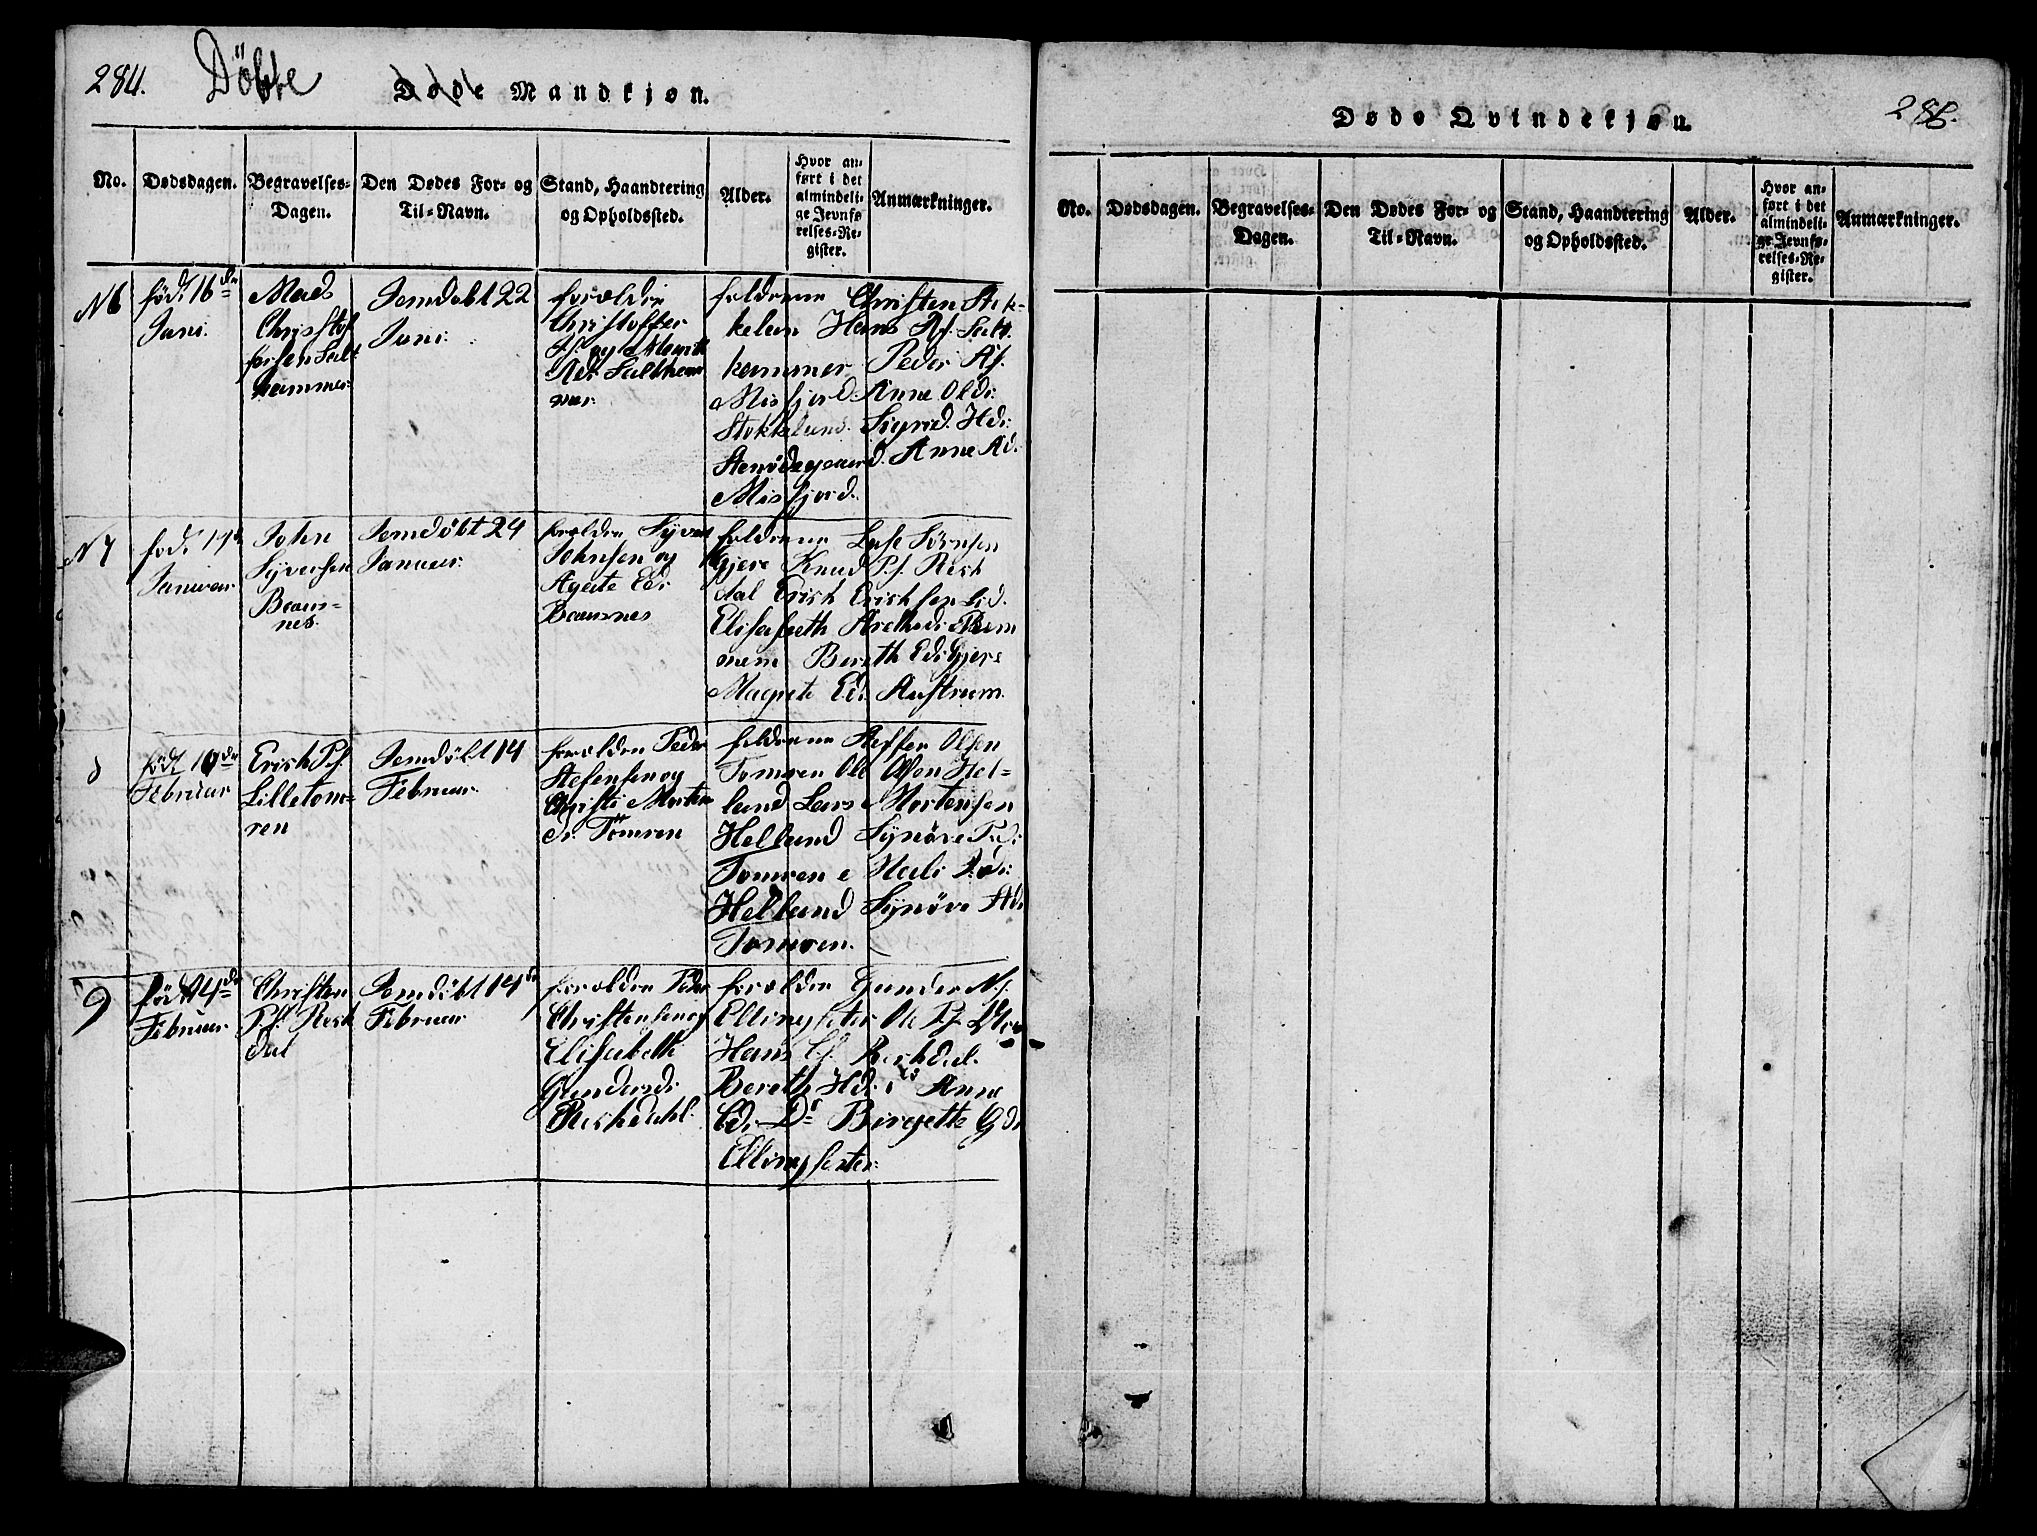 284. Döbte Døde Mandkjøn.
No.
Dødsdagen.
Begravelses-
Dagen.
Den Dødes For- og
Til-Navn.
Stand, Haandtering
og Opholdssted.
Alder.
Hvor an-
ført i det
almindeli-
ge Jevnfø
relses-Re-
gister.
Anmærkninger.
N6
født 16de
Juni.
Mads
Christof
fersen Salt
kammer
Jemdøbt 22
Juni.
forældre
Christoffer
og Marith
Saltham
mer
faldrene Christen Stok-
kelun Hans Salt
kammer Peder
Misfjord. Anne Oldr.
Stokkelund. Sigrid. Hdr.
Stenødegaard. Anne Ad.
Misfjord.
N7
født 17de
Januar
John
Syversen
Brans-
nes.
Jemdøbt 24
Januar.
forældre Syver
Johnsen og
Agete Edr
Bransnes
faldrene Lasse Sørnsen
Gjere Knud P.s. Resk
dal Erich Erichsen Lid.
Elisabeth
Bereth Edr. Gjere
Magrete Edr. Austrum.
8
født 10de
Februar
Erich P.s.
Lilletom-
ren
Jemdøbt 14
Februar.
forældre Peder
Stefensen og
Christi Morten
dr. Tömren
faldrene Steffen Olsen
Tomren Ole Olsen Hel-
land Lars Mortensen
Helland Synøve Pd:
Tomren
Helland Synøve
Tomren.
9
født 4de
Februar.
Christen
P.s. Resk
dal
Jemdøbt 14de
Februar
forældre Peder
Christensen og
Elisabeth
Gundersdr
Reskdahl.
forældre Gunder
Ellingseter Ole P.s.
Hans Cs. Reskdal.
Bereth Hdr. Anne
Cdr. Ds Birgette Gdr
Ellingseter.
Døde Qvindekjøn.
No.
Dødsdagen.
Begravelses-
Dagen.
Den Dødes For- og
Til-Navn.
Stand, Haandtering
og Opholdssted.
Alder.
Hvor an-
ført i det
almindeli-
ge Jevnfø-
relses-Re-
gister.
Anmærkninger.